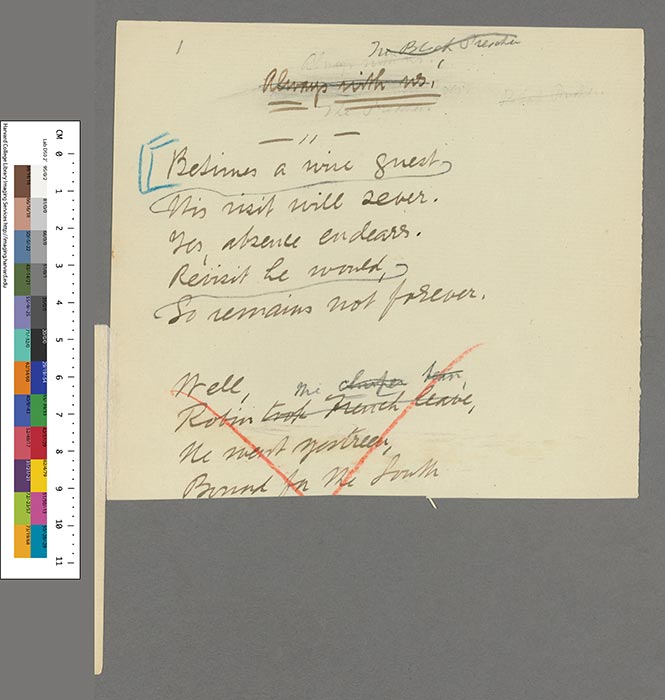 1
The Black Preacher
Always with us!
Betimes a wise guest
His visit will sever.
Yes, absence endears.
Revisit he would,
So remains not forever.
Well, the
Robin took French leave,
He went yestreen,
Bound for the South
CM 0 1 2 3 4 5 6 7 8 9 10 11
Harvard College Library Imaging Services http://imaging.harvard.edu